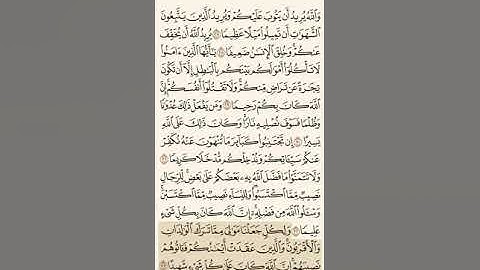 وَٱللَّهُ يُرِيدُ أَن يَتُوبَ عَلَيۡكُمۡ وَيُرِيدُ ٱلَّذِينَ يَتَّبِعُونَ
ٱلشَّهَوَٰتِ أَن تَمِيلُواْ مَيۡلًا عَظِيمٗا ٢٧ يُرِيدُ ٱللَّهُ أَن يُخَفِّفَ
عَنكُمۡۚ وَخُلِقَ ٱلۡإِنسَٰنُ ضَعِيفٗا ٢٨ يَٰٓأَيُّهَا ٱلَّذِينَ ءَامَنُواْ
لَا تَأۡكُلُوٓاْ أَمۡوَٰلَكُم بَيۡنَكُم بِٱلۡبَٰطِلِ إِلَّآ أَن تَكُونَ
تِجَٰرَةً عَن تَرَاضٖ مِّنكُمۡۚ وَلَا تَقۡتُلُوٓاْ أَنفُسَكُمۡۚ إِنَّ
ٱللَّهَ كَانَ بِكُمۡ رَحِيمٗا ٢٩ وَمَن يَفۡعَلۡ ذَٰلِكَ عُدۡوَٰنٗا
وَظُلۡمٗا فَسَوۡفَ نُصۡلِيهِ نَارٗاۚ وَكَانَ ذَٰلِكَ عَلَى ٱللَّهِ
يَسِيرًا ٣٠ إِن تَجۡتَنِبُواْ كَبَآئِرَ مَا تُنۡهَوۡنَ عَنۡهُ نُكَفِّرۡ
عَنكُمۡ سَيِّـَٔاتِكُمۡ وَنُدۡخِلۡكُم مُّدۡخَلٗا كَرِيمٗا ٣١
وَلَا تَتَمَنَّوۡاْ مَا فَضَّلَ ٱللَّهُ بِهِۦ بَعۡضَكُمۡ عَلَىٰ بَعۡضٖۚ لِّلرِّجَالِ
نَصِيبٞ مِّمَّا ٱكۡتَسَبُواْۖ وَلِلنِّسَآءِ نَصِيبٞ مِّمَّا ٱكۡتَسَبۡنَۚ
وَسۡـَٔلُواْ ٱللَّهَ مِن فَضۡلِهِۦٓۚ إِنَّ ٱللَّهَ كَانَ بِكُلِّ شَيۡءٍ
عَلِيمٗا ٣٢ وَلِكُلّٖ جَعَلۡنَا مَوَٰلِيَ مِمَّا تَرَكَ ٱلۡوَٰلِدَانِ
وَٱلۡأَقۡرَبُونَۚ وَٱلَّذِينَ عَقَدَتۡ أَيۡمَٰنُكُمۡ فَـَٔاتُوهُمۡ
نَصِيبَهُمۡۚ إِنَّ ٱللَّهَ كَانَ عَلَىٰ كُلِّ شَيۡءٖ شَهِيدًا ٣٣